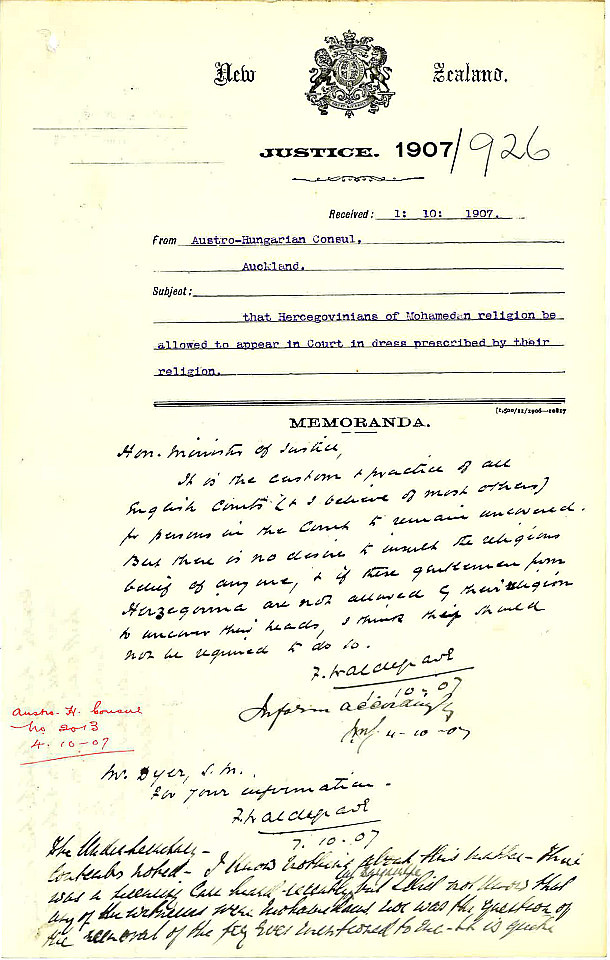 New Zealand.
JUSTICE. 1907/926
Received: 1: 10: 1907.
From Austro-Hungarian Consul,
Auckland.
Subject:
that Hercegovinians of Mohamedan religion be
allowed to appear in Court in dress prescribed by their
religion.
[1,500/12/1906—10817
MEMORANDA.
Hon. Minister of Justice,
It is the custom & practice of all
English Courts (& I believe of most others)
for persons in the Court to remain uncovered.
But there is no desire to insult the religious
belief of anyone, & if these gentlemen from
Herzegovina are not allowed by their religion
to uncover their heads, I think they should
not be required to do so.
F. Waldegrave
10.07
Inform accordingly
4-10-07
Austro-H. Consul
No 2013
4.10-07
Mr. Dyer, S.M.
For your information.
F. Waldegrave
7.10.07
The Under Secretary -
contents noted - I know nothing about this matter - There
was a licensing case heard recently but I did not know that
any of the witnesses were Mohamedans nor was the question of
the removal of the fez ever mentioned to me - it is quite